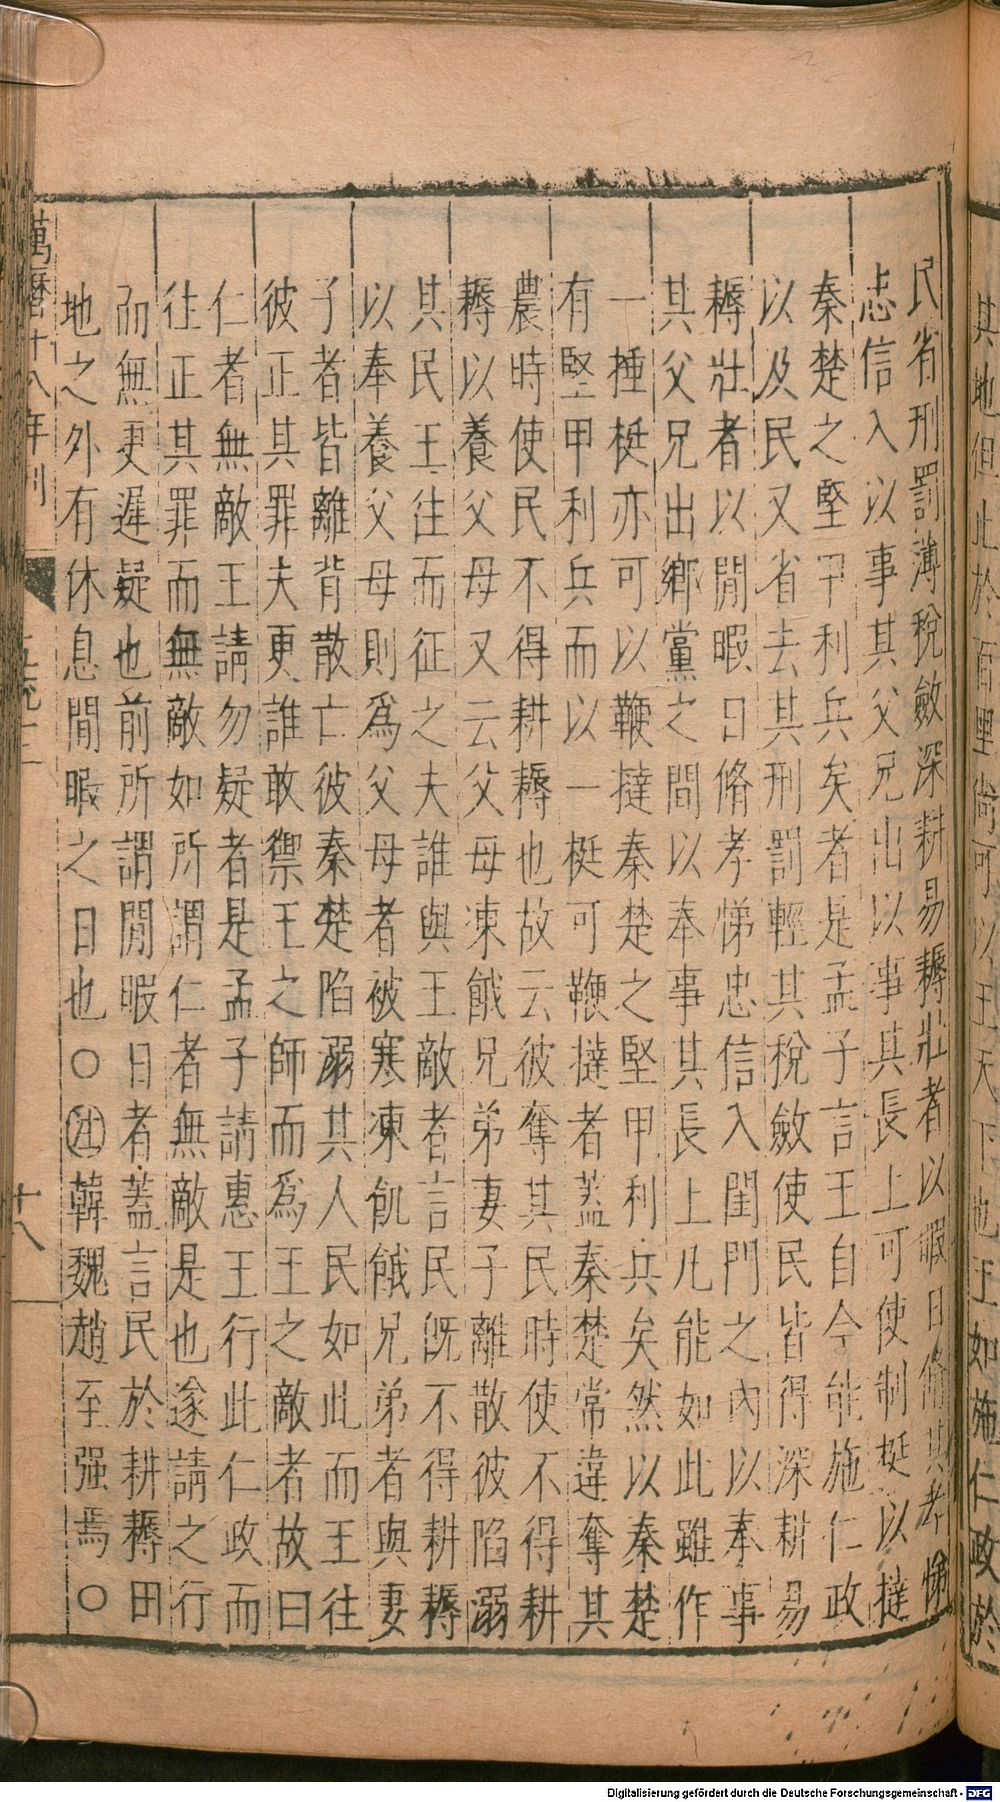 其地但止於百里尚可以王天下也王如施仁政於
民省刑罰薄稅斂深耕易耨壯者以暇日脩其孝悌
忠信入以事其父兄出以事其長上可使制梃以撻
秦楚之堅甲利兵矣者是孟子言王自今能施仁政
以及民又省去其刑罰輕其稅斂使民皆得深耕易
耨壯者以閒暇日脩孝悌忠信入閨門之內以奉事
其父兄出鄉黨之間以奉事其長上凡能如此雖作
一捶梃亦可以鞭撻秦楚之堅甲利兵矣然以秦楚
有堅甲利兵而以一梃可鞭撻者蓋秦楚常違奪其
農時使民不得耕耨也故云彼奪其民時使不得耕
耨以養父母又云父母凍餓兄弟妻子離散彼陷溺
其民王往而征之夫誰與王敵者言民既不得耕耨
以奉養父母則為父母者被寒凍飢餓兄弟者與妻
子者皆離背散亡彼秦楚陷溺其人民如此而王往
彼正其罪夫更誰敢禦王之師而為王之敵者故曰
仁者無敵王請勿疑者是孟子請惠王行此仁政而
往正其罪而無敵如所謂仁者無敵是也遂請之行
而無更遲疑也前所謂閒暇日者蓋言民於耕耨田
地之外有休息閒暇之日也○注韓魏趙至强焉○
萬曆十八年刊
廿八
Digitalisierung gefördert durch die Deutsche Forschungsgemeinschaft - DFG